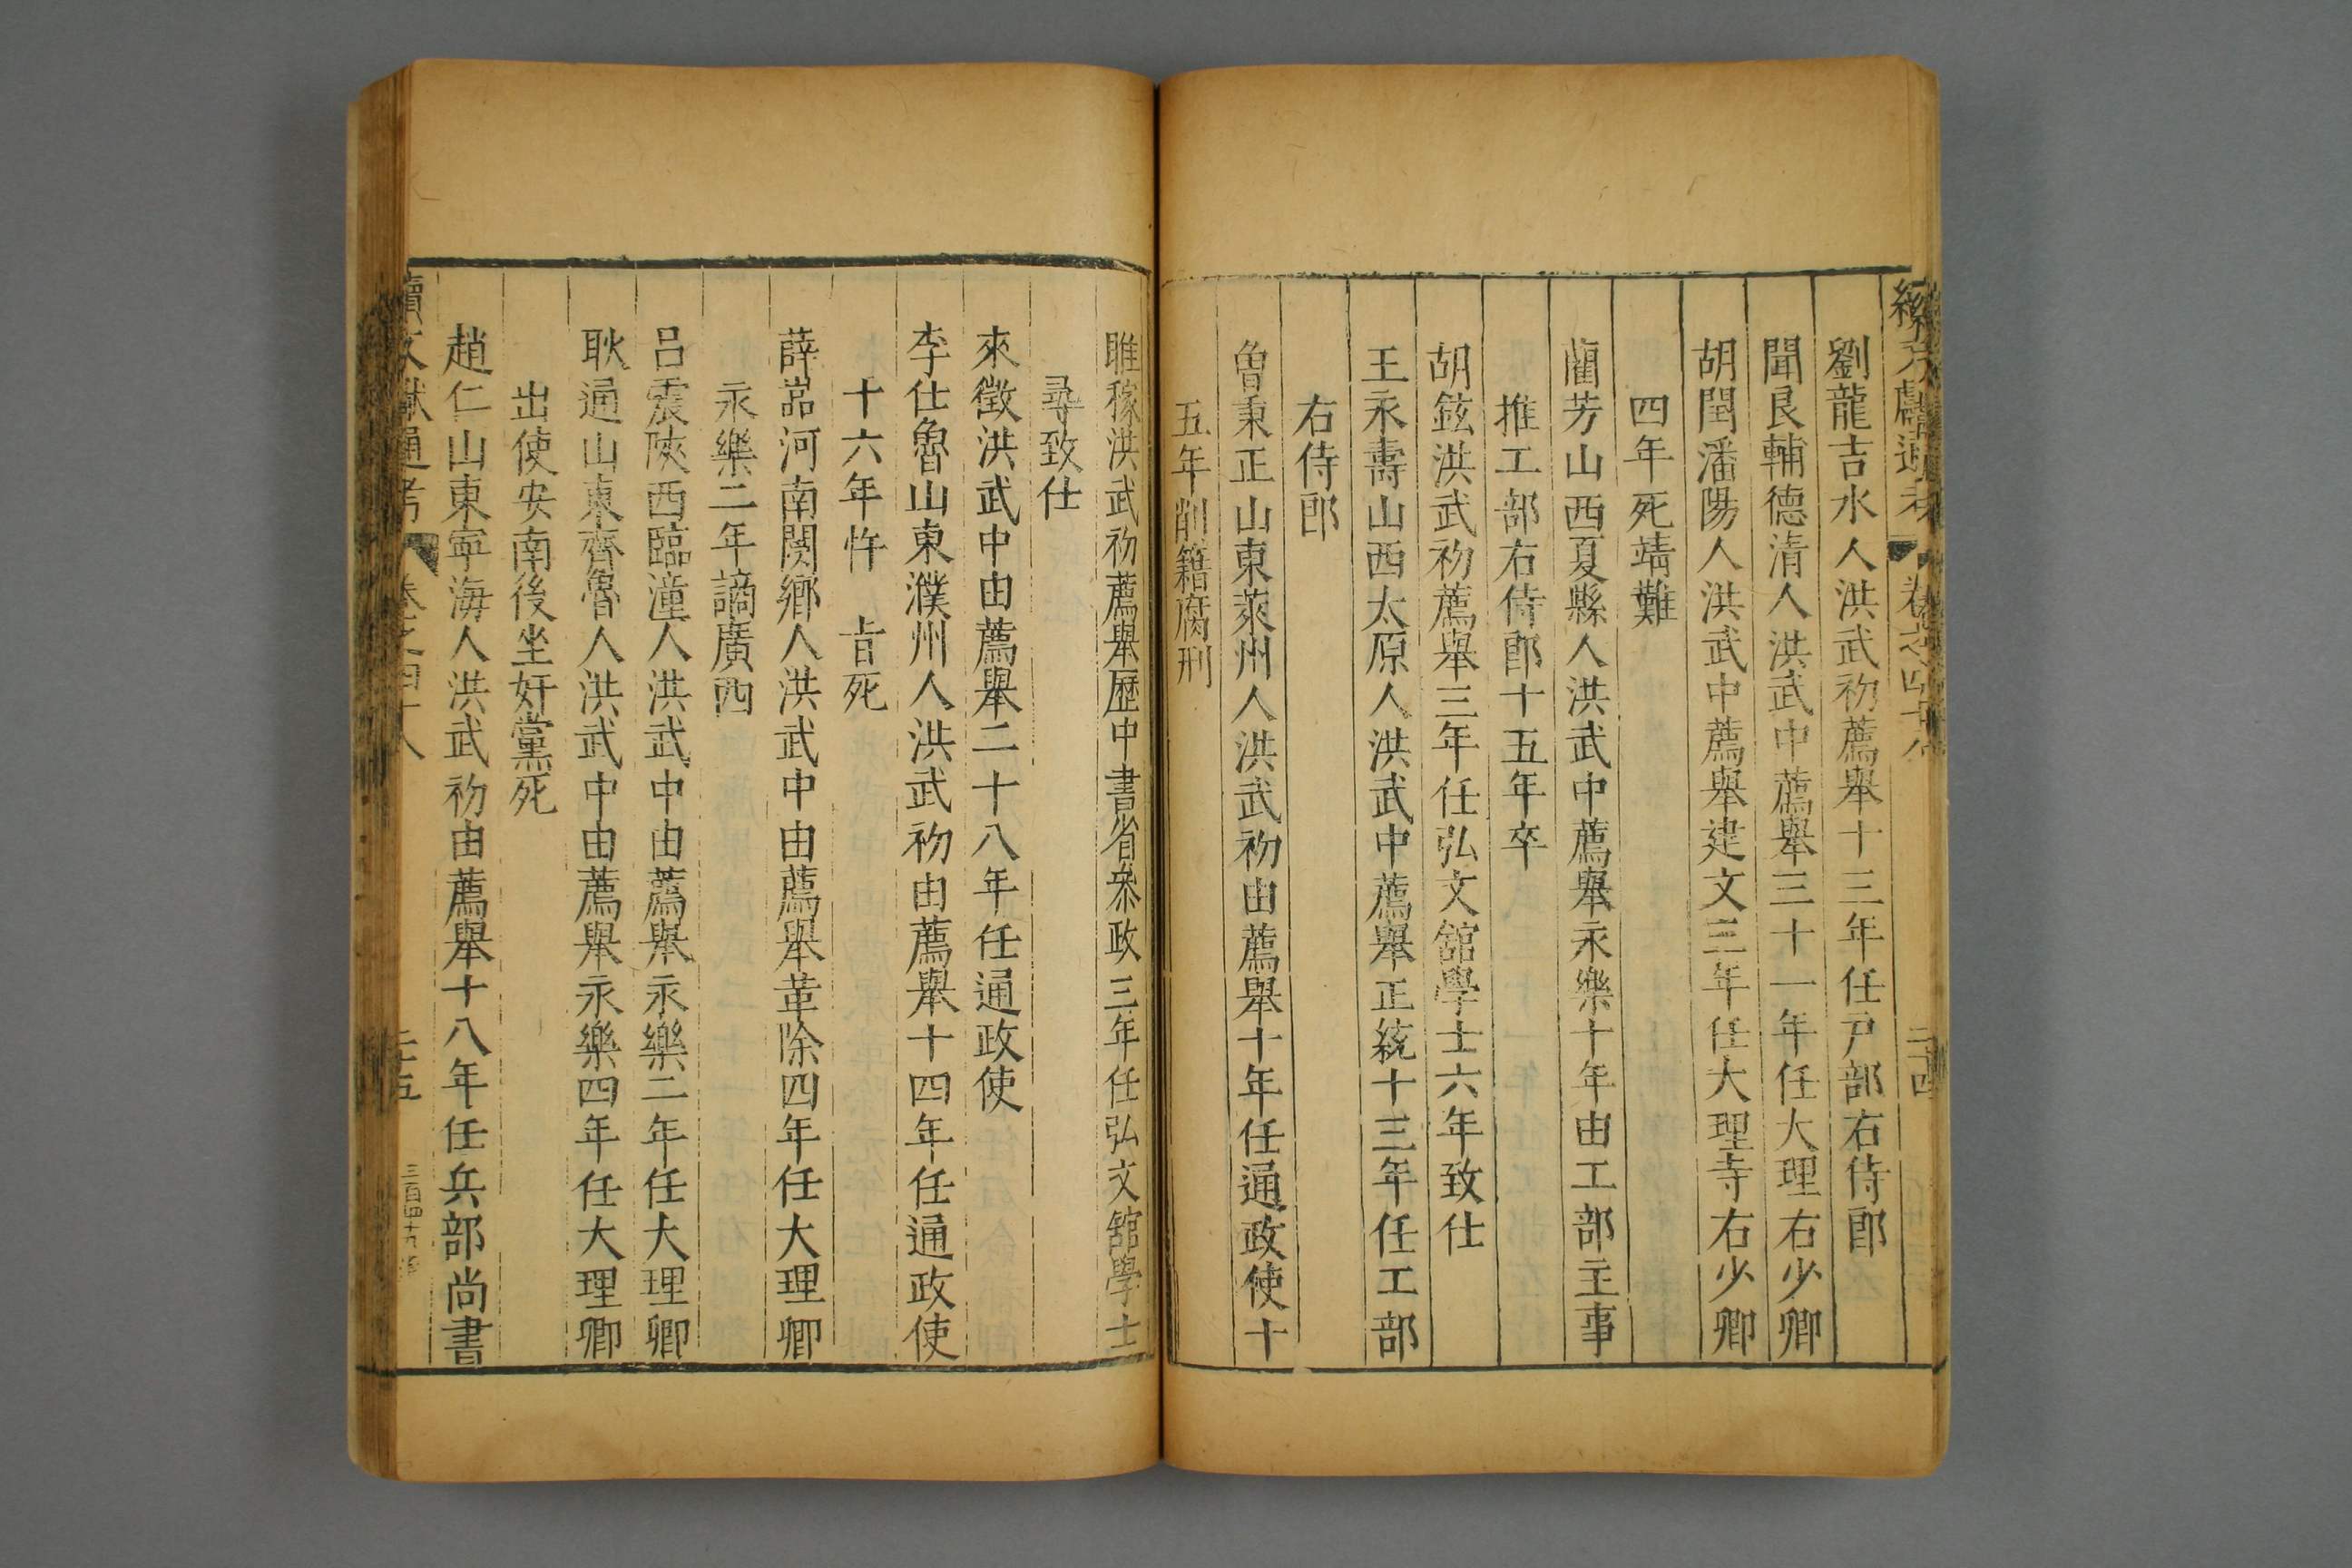 劉龍吉水人洪武初薦舉十三年任戸部右侍郎
聞良輔德清人洪武中薦舉三十一年任大理右少卿
胡閏潘陽人洪武中薦舉建文三年任大理寺右少卿
四年死靖難
藺芳山西夏縣人洪武中薦舉永樂十年由工部主事
推工部右侍郎十五年卒
胡鉉洪武初薦舉三年任弘文舘學士六年致仕
王永壽山西太原人洪武中薦舉正統十三年任工部
右侍郎
曾秉正山東萊州人洪武初由薦舉十年任通政使十
五年削籍腐刑
睢稼洪武初薦舉歷中書省叅政三年任弘文舘學士
尋致仕
來徵洪武中由薦舉二十八年任通政使
李仕魯山東濮州人洪武初由薦舉十四年任通政使
十六年忤 旨死
薛嵓河南閿鄉人洪武中由薦舉革除四年任大理卿
永樂二年謫廣西
吕震陜西臨潼人洪武中由薦舉永樂二年任大理卿
耿通山東齊魯人洪武中由薦舉永樂四年任大理卿
出使安南後坐奸黨死
趙仁山東寧海人洪武初由薦舉十八年任兵部尚書
續文獻通考 卷之四十八 二十五